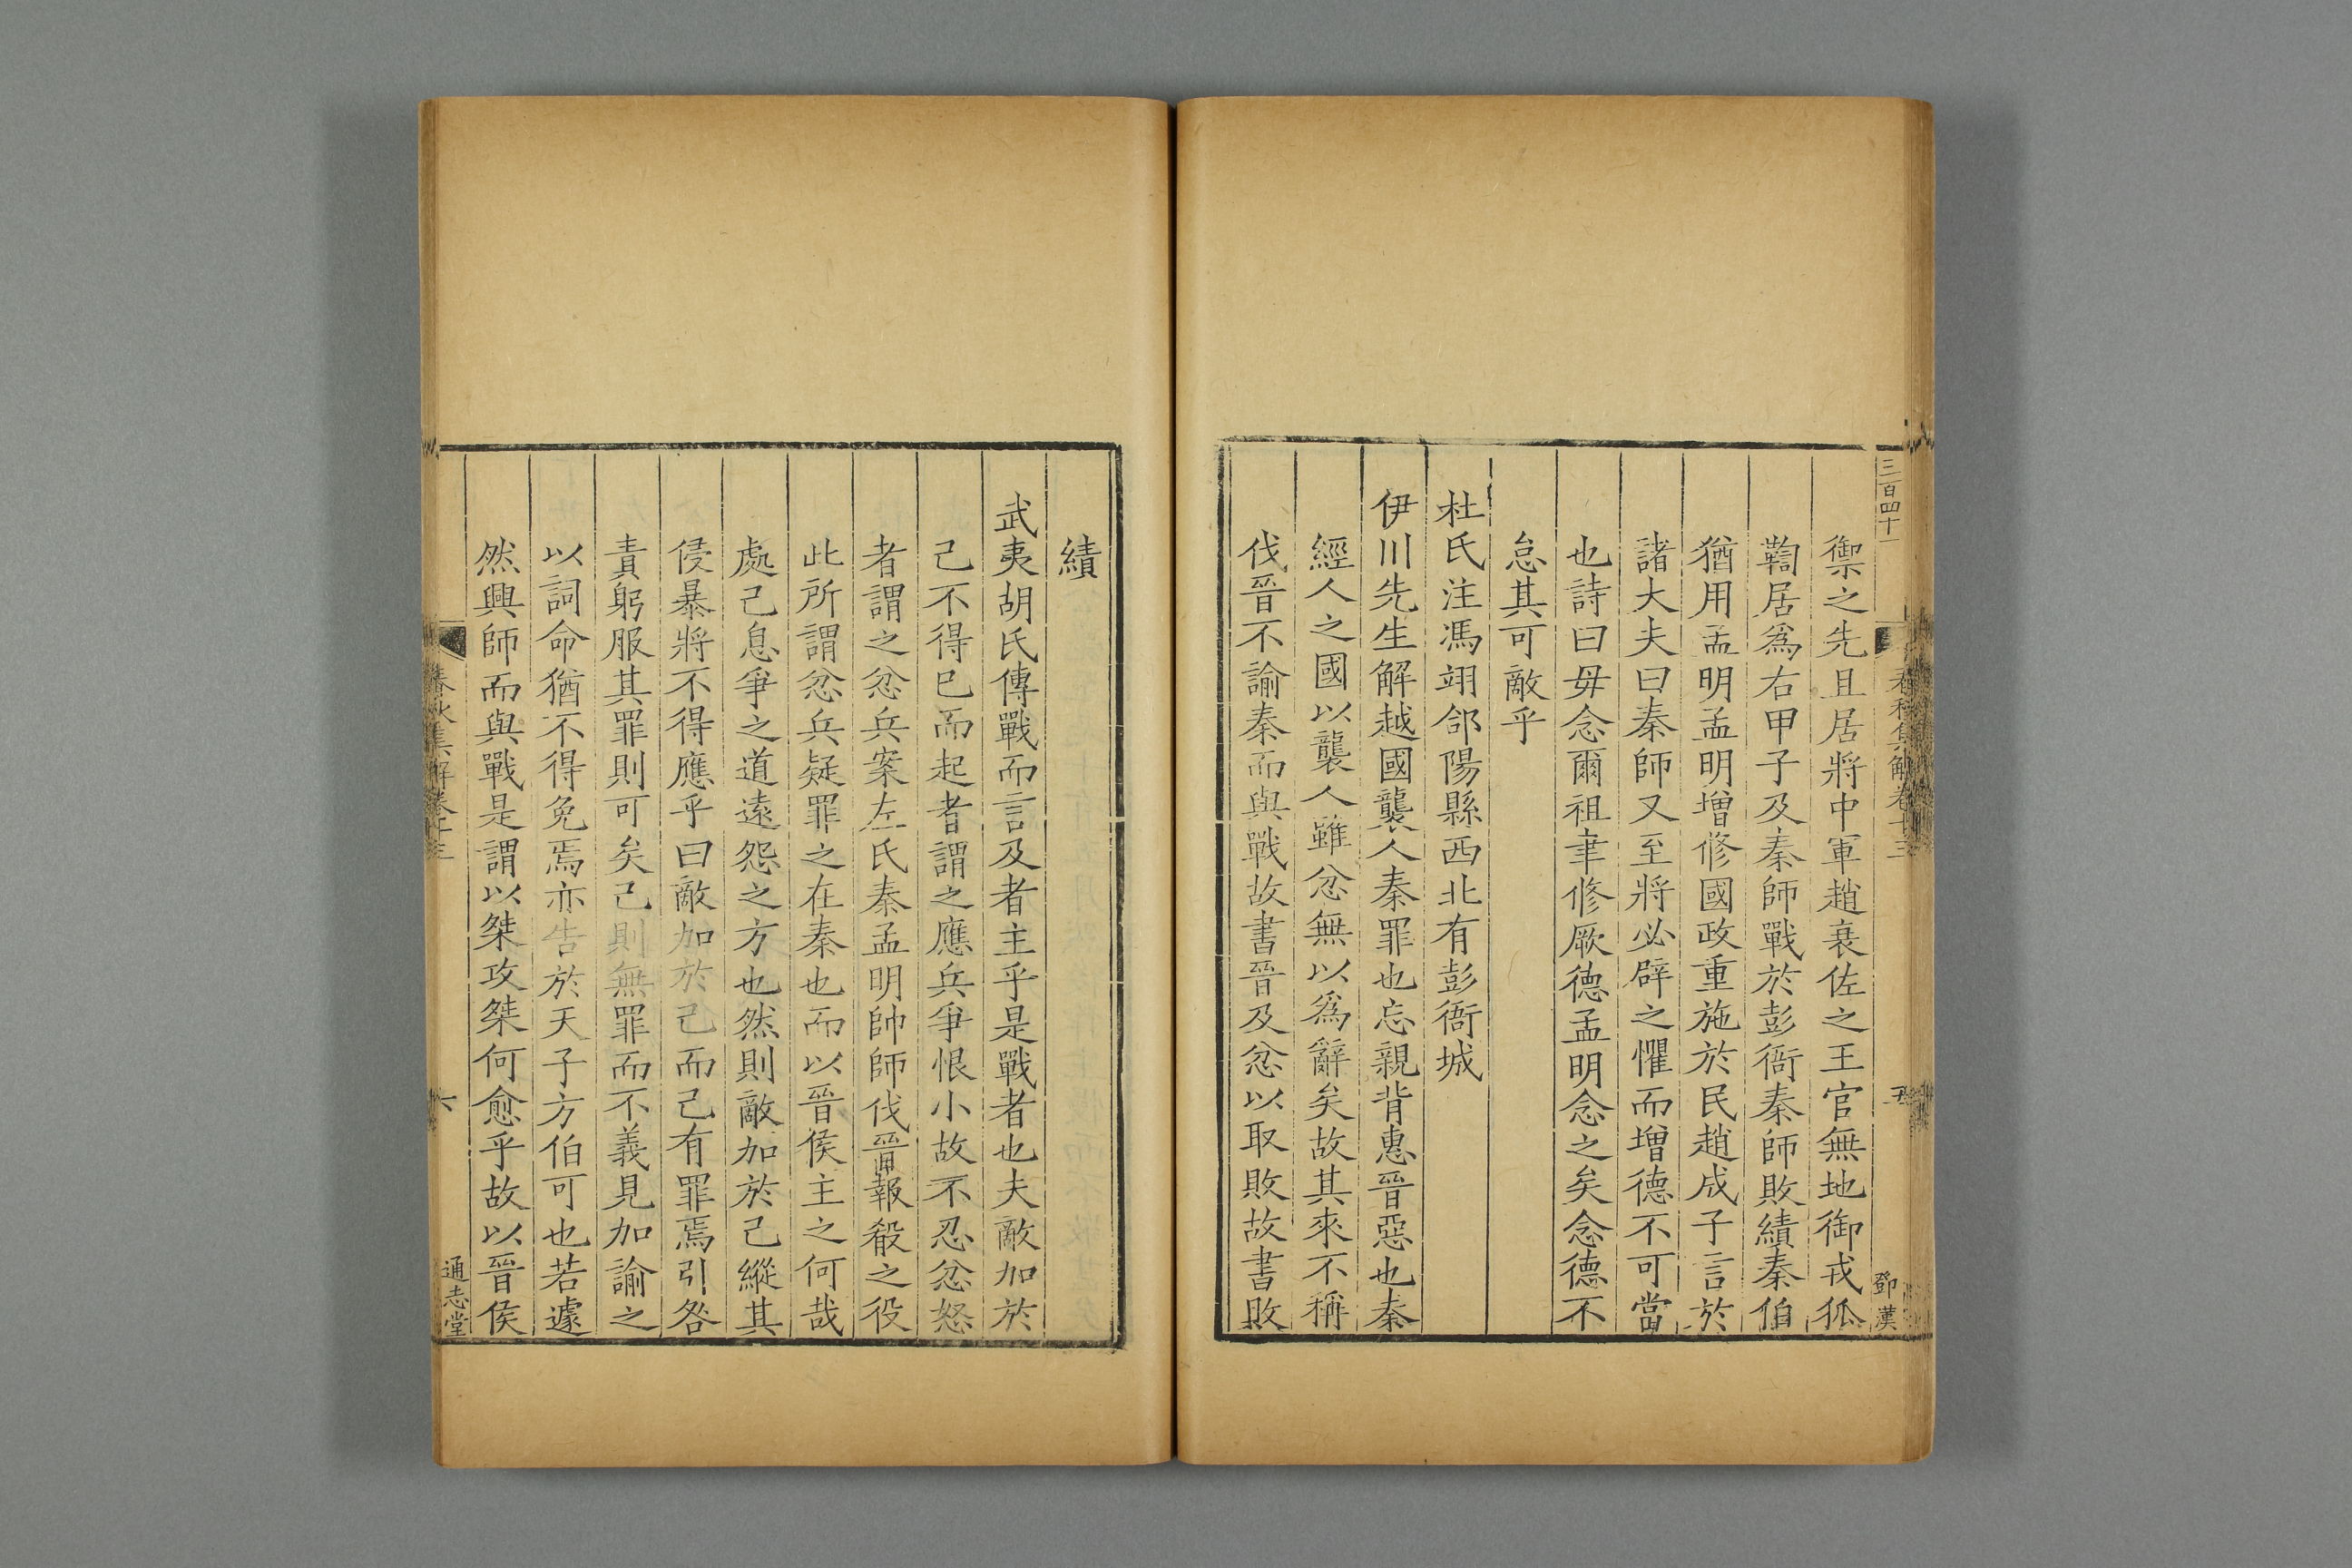 三百四十一
春秋集解卷十三
五
鄧漢
禦之先且居將中軍趙衰佐之王官無地御戎狐
鞫居爲右甲子及秦師戰於彭衙秦師敗績秦伯
猶用孟明孟明增修國政重施於民趙成子言於
諸大夫曰秦師又至將必辟之懼而增德不可當
也詩曰毋念爾祖聿修厥德孟明念之矣念德不
怠其可敵乎
杜氏注馮翊郃陽縣西北有彭衙城
伊川先生解越國襲人秦罪也忘親背惠晉惡也秦
經人之國以襲人雖忿無以爲辭矣故其來不稱
伐晉不諭秦而與戰故書晉及忿以取敗故書敗
績
武夷胡氏傳戰而言及者主乎是戰者也夫敵加於
己不得已而起者謂之應兵爭恨小故不忍忿怒
者謂之忿兵案左氏秦孟明帥師伐晉報殽之役
此所謂忿兵疑罪之在秦也而以晉侯主之何哉
處己息爭之道遠怨之方也然則敵加於己縱其
侵暴將不得應乎曰敵加於己而己有罪焉引咎
責躬服其罪則可矣己則無罪而不義見加諭之
以詞命猶不得免焉亦告於天子方伯可也若遽
然興師而與戰是謂以桀攻桀何愈乎故以晉侯
春秋集解卷十三
六
通志堂